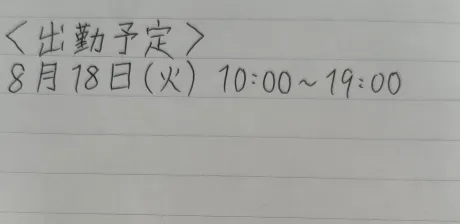 ＜出勤予定＞
8月18日(火) 10:00~19:00